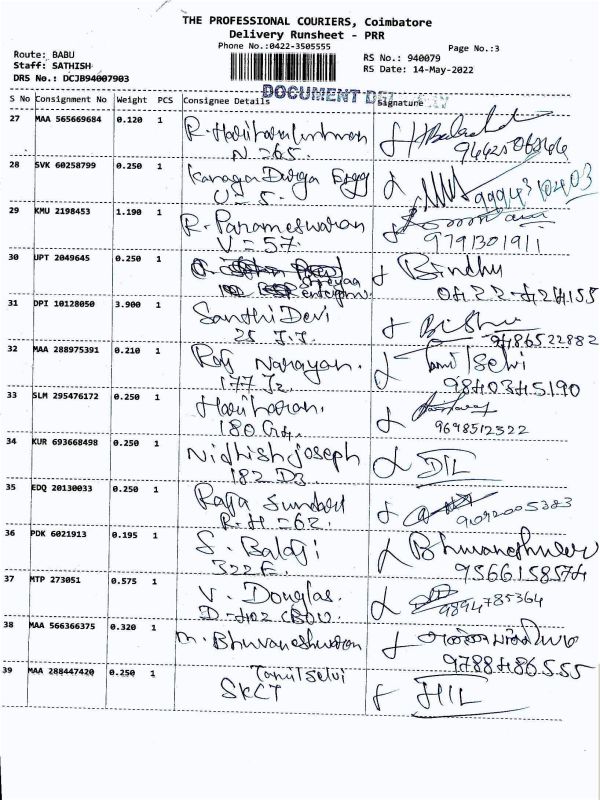 THE PROFESSIONAL COURIERS, Coimbatore
Delivery Runsheet - PRR
Phone No.:0422-3505555
Page No.:3
Route: BABU
Staff: SATHISH
DRS No.: DCJB94007903
RS No.: 940079
RS Date: 14-May-2022
S No Consignment No Weight PCS Consignee Details Signature
DOCUMENT
27 MAA 565669684 0.120 1 R. Hariharakrishnan
N = 65.
28 SVK 60258799 0.250 1 Kanaga Durga Engg
U = 5.
29 KMU 2198453 1.190 1 R. Parameswaran
V = 57. 9791301911
30 UPT 2049645 0.250 1 Shreyaa Bindhu
enterprises. 0422-424155
31 DPI 10128050 3.900 1 Santhi Devi
25 J.J. 9486522882
32 MAA 288975391 0.210 1 Raj Narayan. Tamil Selvi
177 J2. 9840345190
33 SLM 295476172 0.250 1 Hariharan.
180 G4. 9698512322
34 KUR 693668498 0.250 1 Nidhish Joseph DIL
182 D3
35 EDQ 20130033 0.250 1 Raja Sundari
R.H = 62. 9092005383
36 PDK 6021913 0.195 1 S. Balaji Bhuvaneshwer
322 E. 9566158574
37 MTP 273051 0.575 1 V. Douglas.
D-402 CBOU. 9894785364
38 MAA 566366375 0.320 1 M. Bhuvaneshwaran
9788486555
39 MAA 288447420 0.250 1 Tamil Selvi
SKCT HIL